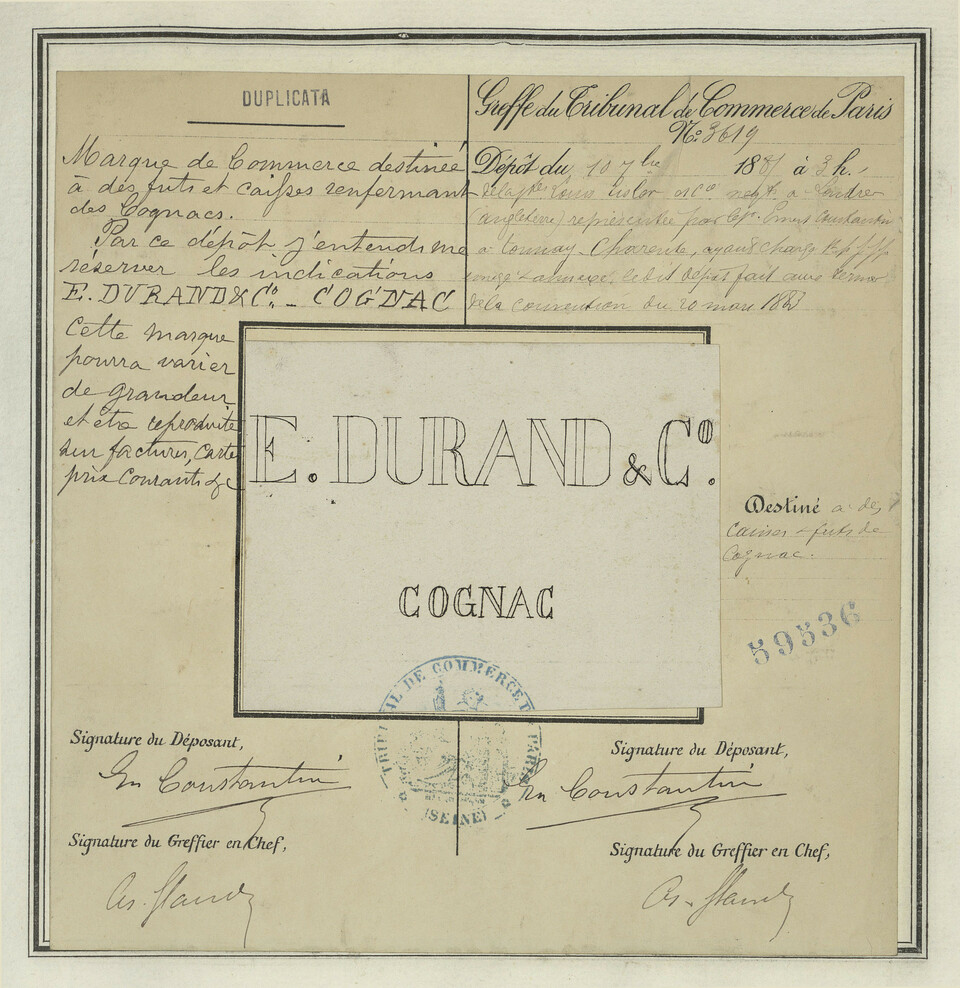 DUPLICATA
Marque de Commerce destinée
à des futs et caisses renfermant
des Cognacs.
Par ce dépôt j'entends me
réserver les indications
E. DURAND & Cº. _ COGNAC
Cette marque
pourra varier
de grandeur
et être reproduite
sur factures, carte
prix courants &c
Greffe du Tribunal de Commerce de Paris
Nº 3619
Dépôt du 10 7bre 188 à 3 h.
(angleterre) représentée par Constantin
à Tonnay-Charente, ayant charge
le dit dépôt fait aux termes
de la convention du 20 mars 1883
E. DURAND & Cº.
COGNAC
Destiné à des
caisses & futs de
Cognac.
59536
TRIBUNAL DE COMMERCE DE PARIS
(SEINE)
Signature du Déposant,
Em Constantin
Signature du Greffier en Chef,
Signature du Déposant,
Em Constantin
Signature du Greffier en Chef,